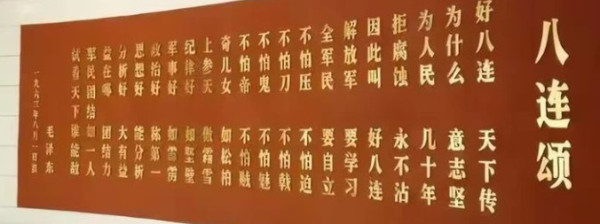 八连颂
好八连 天下传
为什么 意志坚
为人民 几十年
拒腐蚀 永不沾
因此叫 好八连
解放军 要学习
全军民 要自立
不怕压 不怕迫
不怕刀 不怕戟
不怕鬼 不怕魅
不怕帝 不怕贼
奇儿女 如松柏
上参天 傲霜雪
纪律好 如坚壁
军事好 如霹雳
政治好 称第一
思想好 能分析
分析好 大有益
益在哪 团结力
军民团结如一人
试看天下谁能敌
毛泽东
一九六三年八月一日